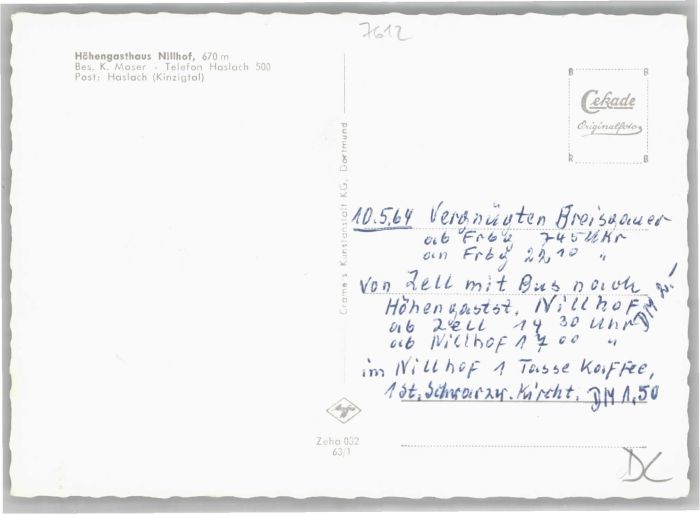 7612
Höhengasthaus Nillhof, 670 m
Bes. K. Moser - Telefon Haslach 500
Post: Haslach (Kinzigtal)
Cekade
Originalfoto
Cramers Kunstanstalt KG, Dortmund
10.5.64 Vergnügten Breisgauer
ab Frbg 745 Uhr
an Frbg 22,10 "
von Zell mit Bus nach
Höhengastst. Nillhof DM 2.-
ab Zell 14 30 Uhr
ab Nillhof 17 00 "
im Nillhof 1 Tasse Kaffee,
1 St. Schwarzw. Kircht. DM 1,50
Agfa
Zeha 032
63/1